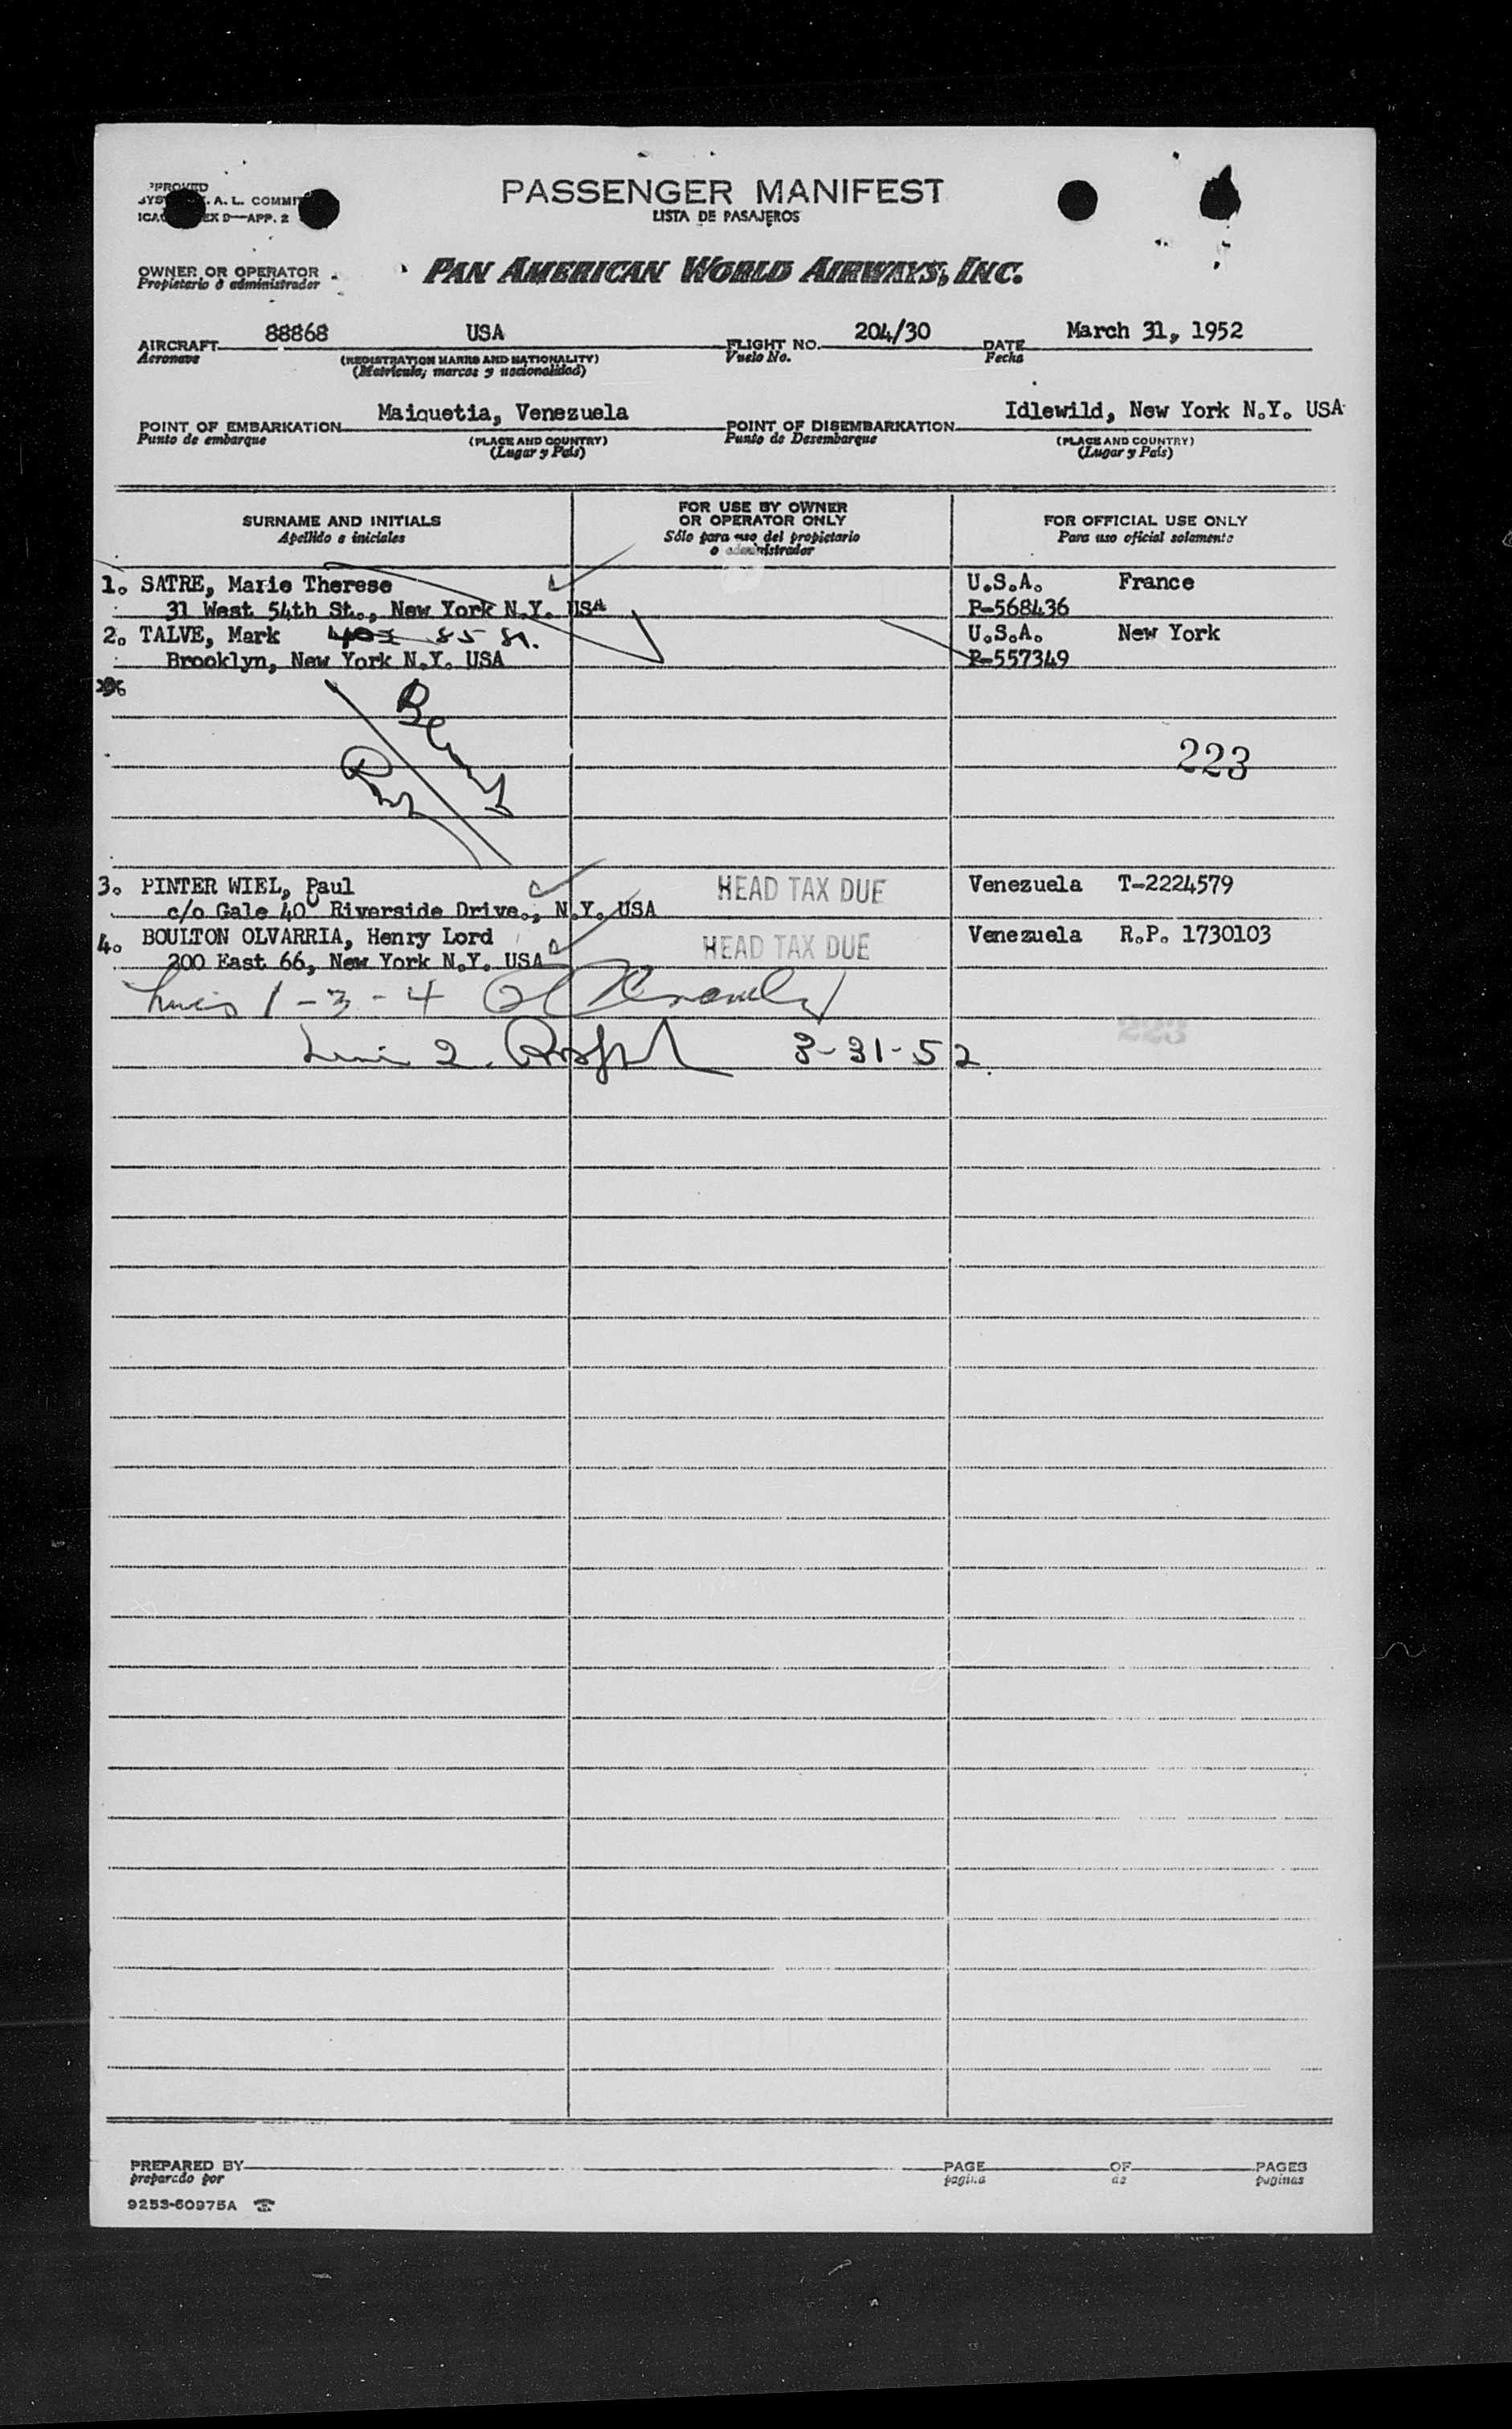 PASSENGER MANIFEST
LISTA DE PASAJEROS
PPROVED
A. L. COMMI
EX D—APP. 2
OWNER OR OPERATOR
Propietario ó administrador
PAN AMERICAN WORLD AIRWAYS, INC.
AIRCRAFT 88868 USA FLIGHT NO. 204/30 DATE March 31, 1952
Aeronave (REGISTRATION MARKS AND NATIONALITY) Vuelo No. Fecha
(Matricula; marcas y nacionalidad)
POINT OF EMBARKATION Maiquetia, Venezuela POINT OF DISEMBARKATION Idlewild, New York N.Y. USA
Punto de embarque (PLACE AND COUNTRY) Punto de Desembarque (PLACE AND COUNTRY)
(Lugar y País) (Lugar y País)
SURNAME AND INITIALS
Apellido e iniciales
FOR USE BY OWNER
OR OPERATOR ONLY
Sólo para uso del propietario
o administrador
FOR OFFICIAL USE ONLY
Para uso oficial solamente
1. SATRE, Marie Therese U.S.A. France
31 West 54th St., New York N.Y. USA P-568436
2. TALVE, Mark 85 St. U.S.A. New York
Brooklyn, New York N.Y. USA P-557349
223
3. PINTER WIEL, Paul HEAD TAX DUE Venezuela T-2224579
c/o Gale 40 Riverside Drive., N.Y. USA
4. BOULTON OLVARRIA, Henry Lord HEAD TAX DUE Venezuela R.P. 1730103
200 East 66, New York N.Y. USA
Lines 1-3-4
223
Line 2. 3-31-52
PREPARED BY PAGE OF PAGES
preparado por pagina de paginas
9253-60975A